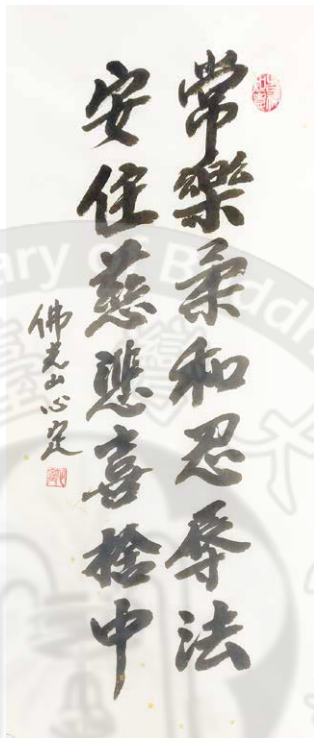 常樂柔和忍辱法
安住慈悲喜捨中
佛光山心定